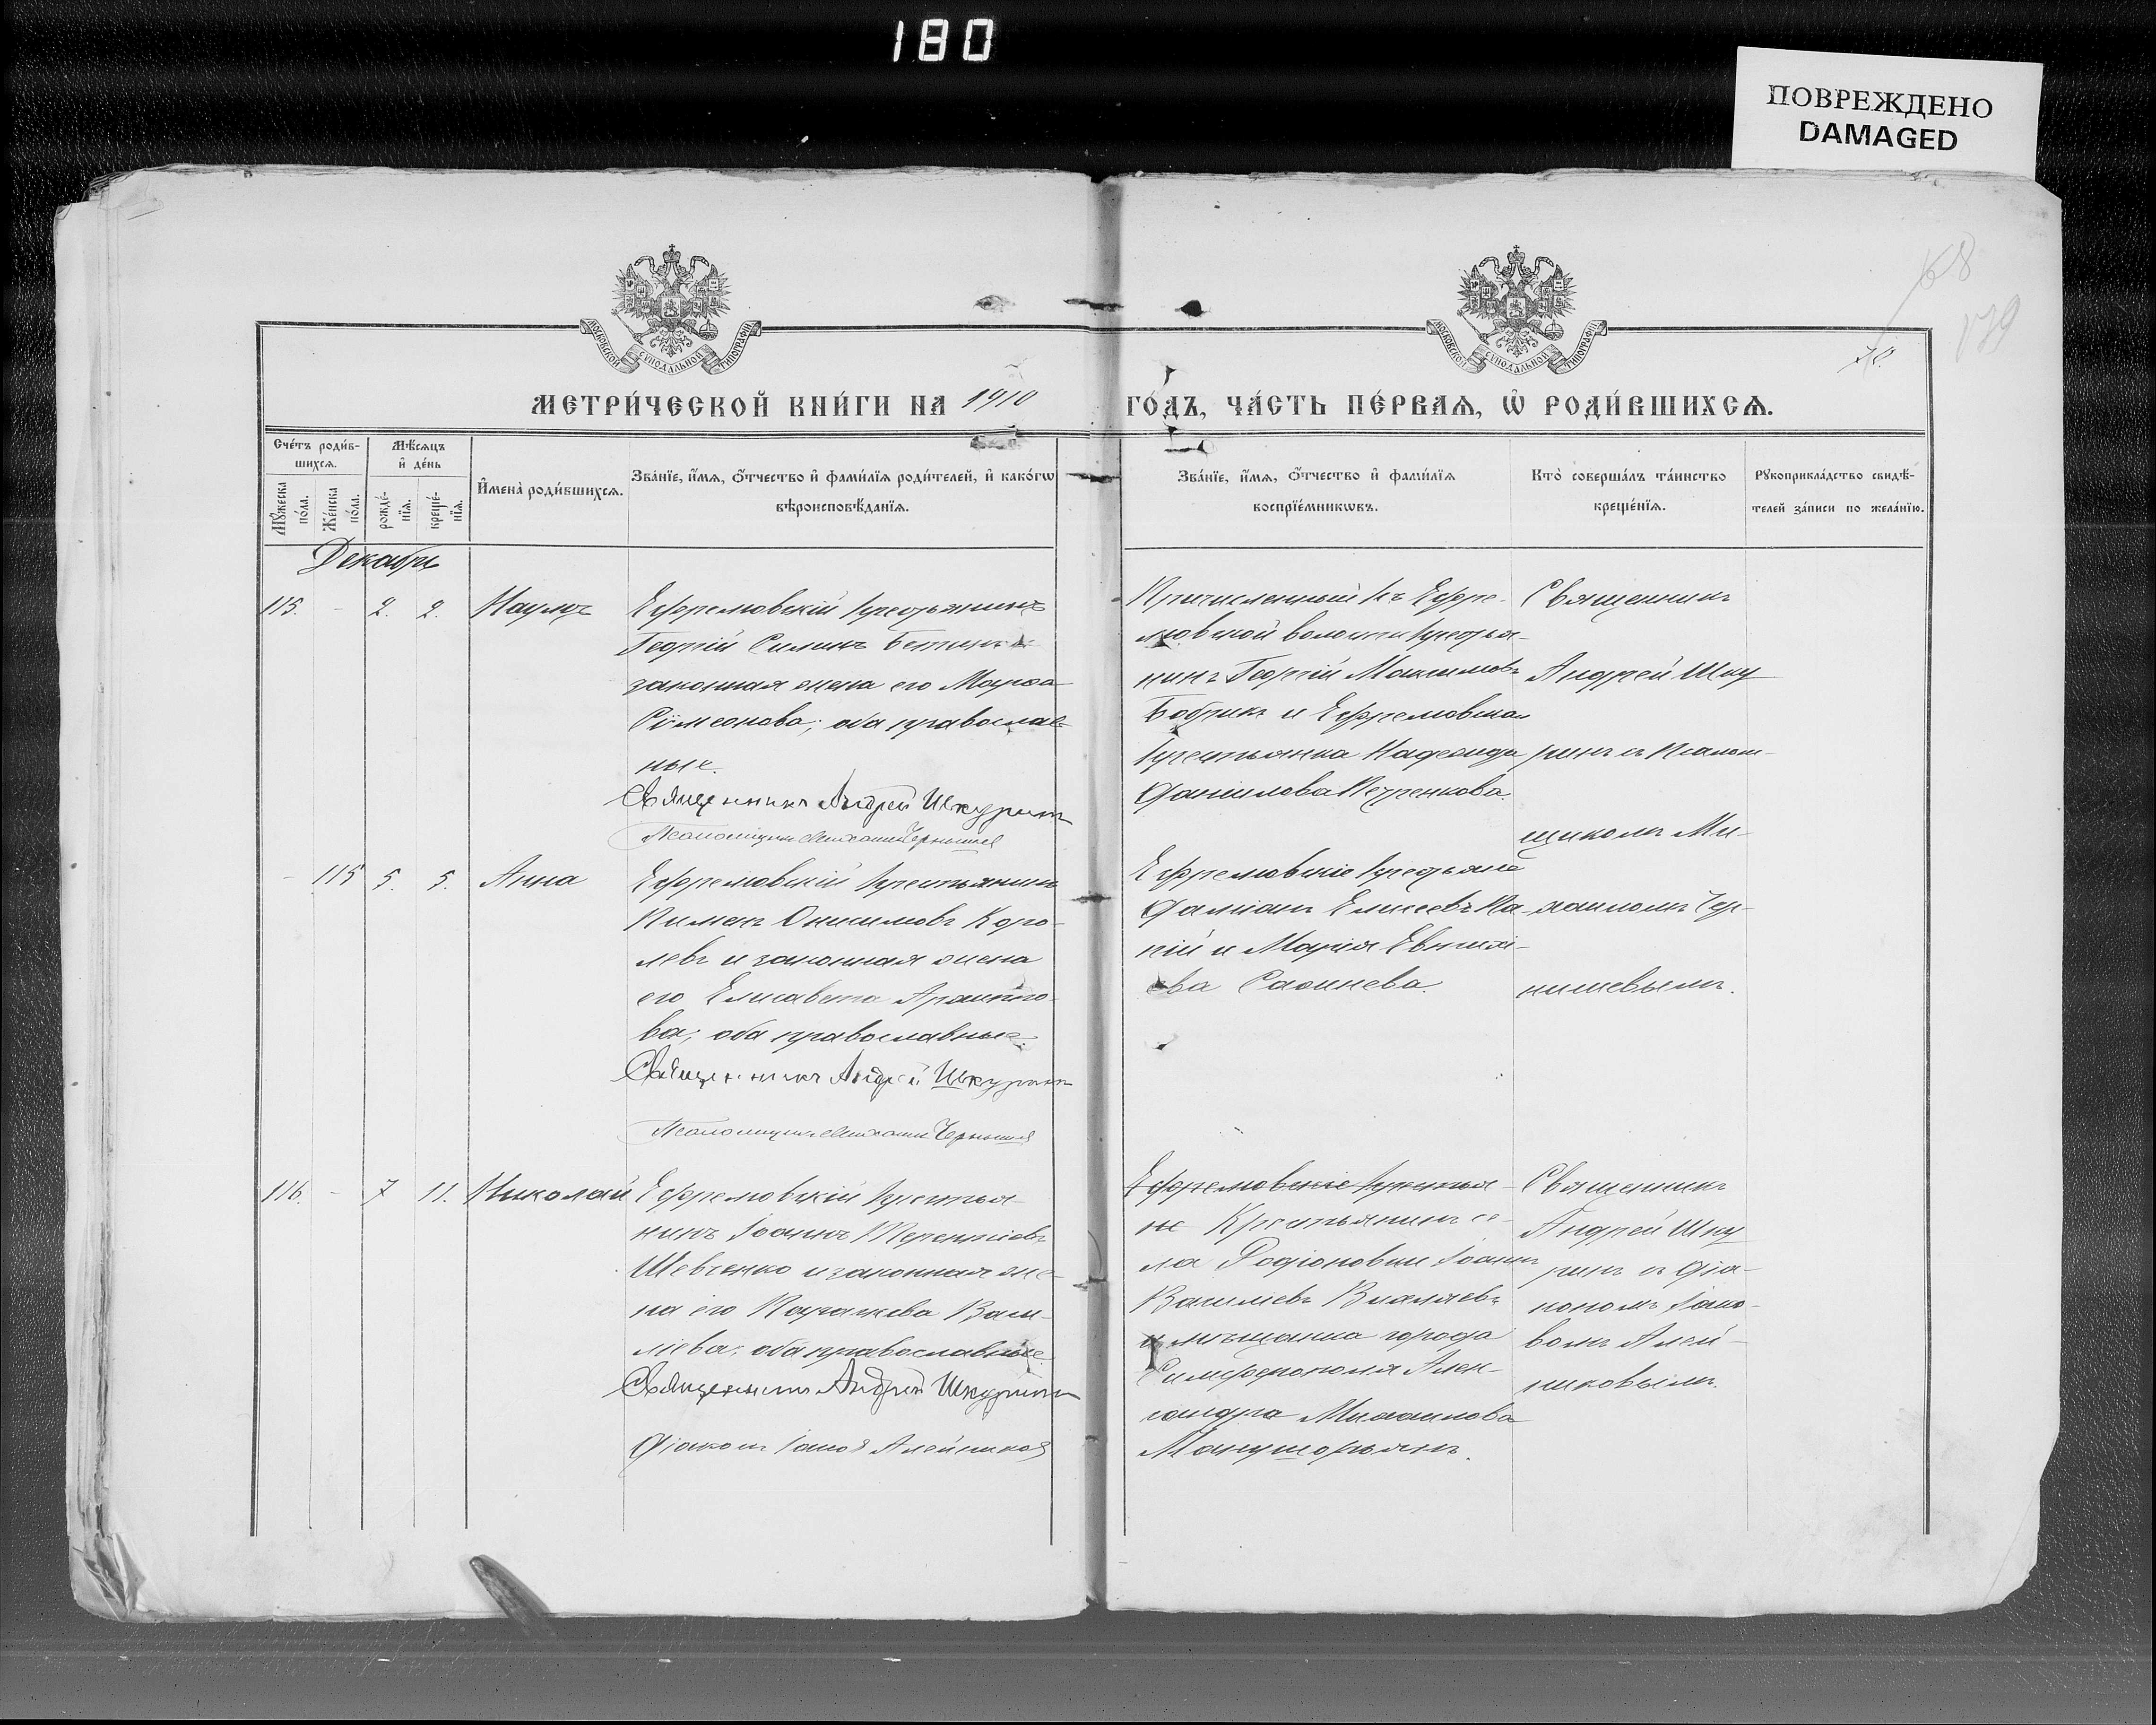 180
ПОВРЕЖДЕНО
DAMAGED
68
179
70.
МОСКОВСКОЙ СѴНОДАЛЬНОЙ ТИПОГРАФІИ
МОСКОВСКОЙ СѴНОДАЛЬНОЙ ТИПОГРАФІИ
МЕТРИ́ЧЕСКОЙ КНИ́ГИ НА 1910 ГО́ДЪ, ЧА́СТЬ ПЕ́РВАѦ, Ѡ҆ РОДИ́ВШИХСѦ.
Сче́тъ роди́в-
шихсѧ.
Мꙋ́жеска по́ла.
Же́нска по́ла.
Мѣ́сѧцъ
и҆ де́нь
рожде́-
нїѧ.
креще́-
нїѧ.
И҆мена̀ роди́вшихсѧ.
Зва́нїе, и҆́мѧ, ѻ҆́тчество и҆ фами́лїѧ роди́телей, и҆ како́гѡ
вѣроисповѣ́данїѧ.
Зва́нїе, и҆́мѧ, ѻ҆́тчество и҆ фами́лїѧ
воспрїе́мникѡвъ.
Кто̀ соверша́лъ та́инство
креще́нїѧ.
Рꙋкоприкла́дство свидѣ́-
телей за́писи по жела́нїю.
Декабрь
115. - 2. 2. Наумъ
Ефремовскій крестьянинъ
Георгій Силинъ
законная жена его Марѳа
Сѵмеонова; оба православ-
ные.
Священникъ Андрей Шкуринъ
Псаломщикъ Михаилъ Чернышевъ
Причисленный къ Ефре-
мовской волости крестья-
нинъ Георгій Максимовъ
Бобрикъ и Ефремовская
крестьянка Надежда
Данилова Петренкова.
Священникъ
Андрей Шку
ринъ съ псалом-
щикомъ Ми-
хаиломъ Чер-
нышевымъ.
- 115 5. 5. Анна
Ефремовскій крестьянинъ
Пименъ Онисимовъ Коро-
левъ и законная жена
его Елисавета
ва; оба православные.
Священникъ Андрей Шкуринъ
Псаломщикъ Михаилъ Чернышевъ
Ефремовскіе крестьяне
Даміанъ Елисеевъ Па-
пій и Марія
ева
116. - 7 11. Николай
Ефремовскій крестья-
нинъ Іоаннъ Терентіевъ
Шевченко и законная же-
на его Параскева Васи-
ліева; оба православные.
Священникъ Андрей Шкуринъ
Діаконъ Іаковъ Алейниковъ
Ефремовскіе крестья-
не Крестьянинъ се-
ла Родіоновки Іоаннъ
Василіевъ
и мѣщанка города
Симферополя Алек-
сандра Михаилова
Священникъ
Андрей Шку
ринъ съ діа-
кономъ Іако-
вомъ Алей-
никовымъ.